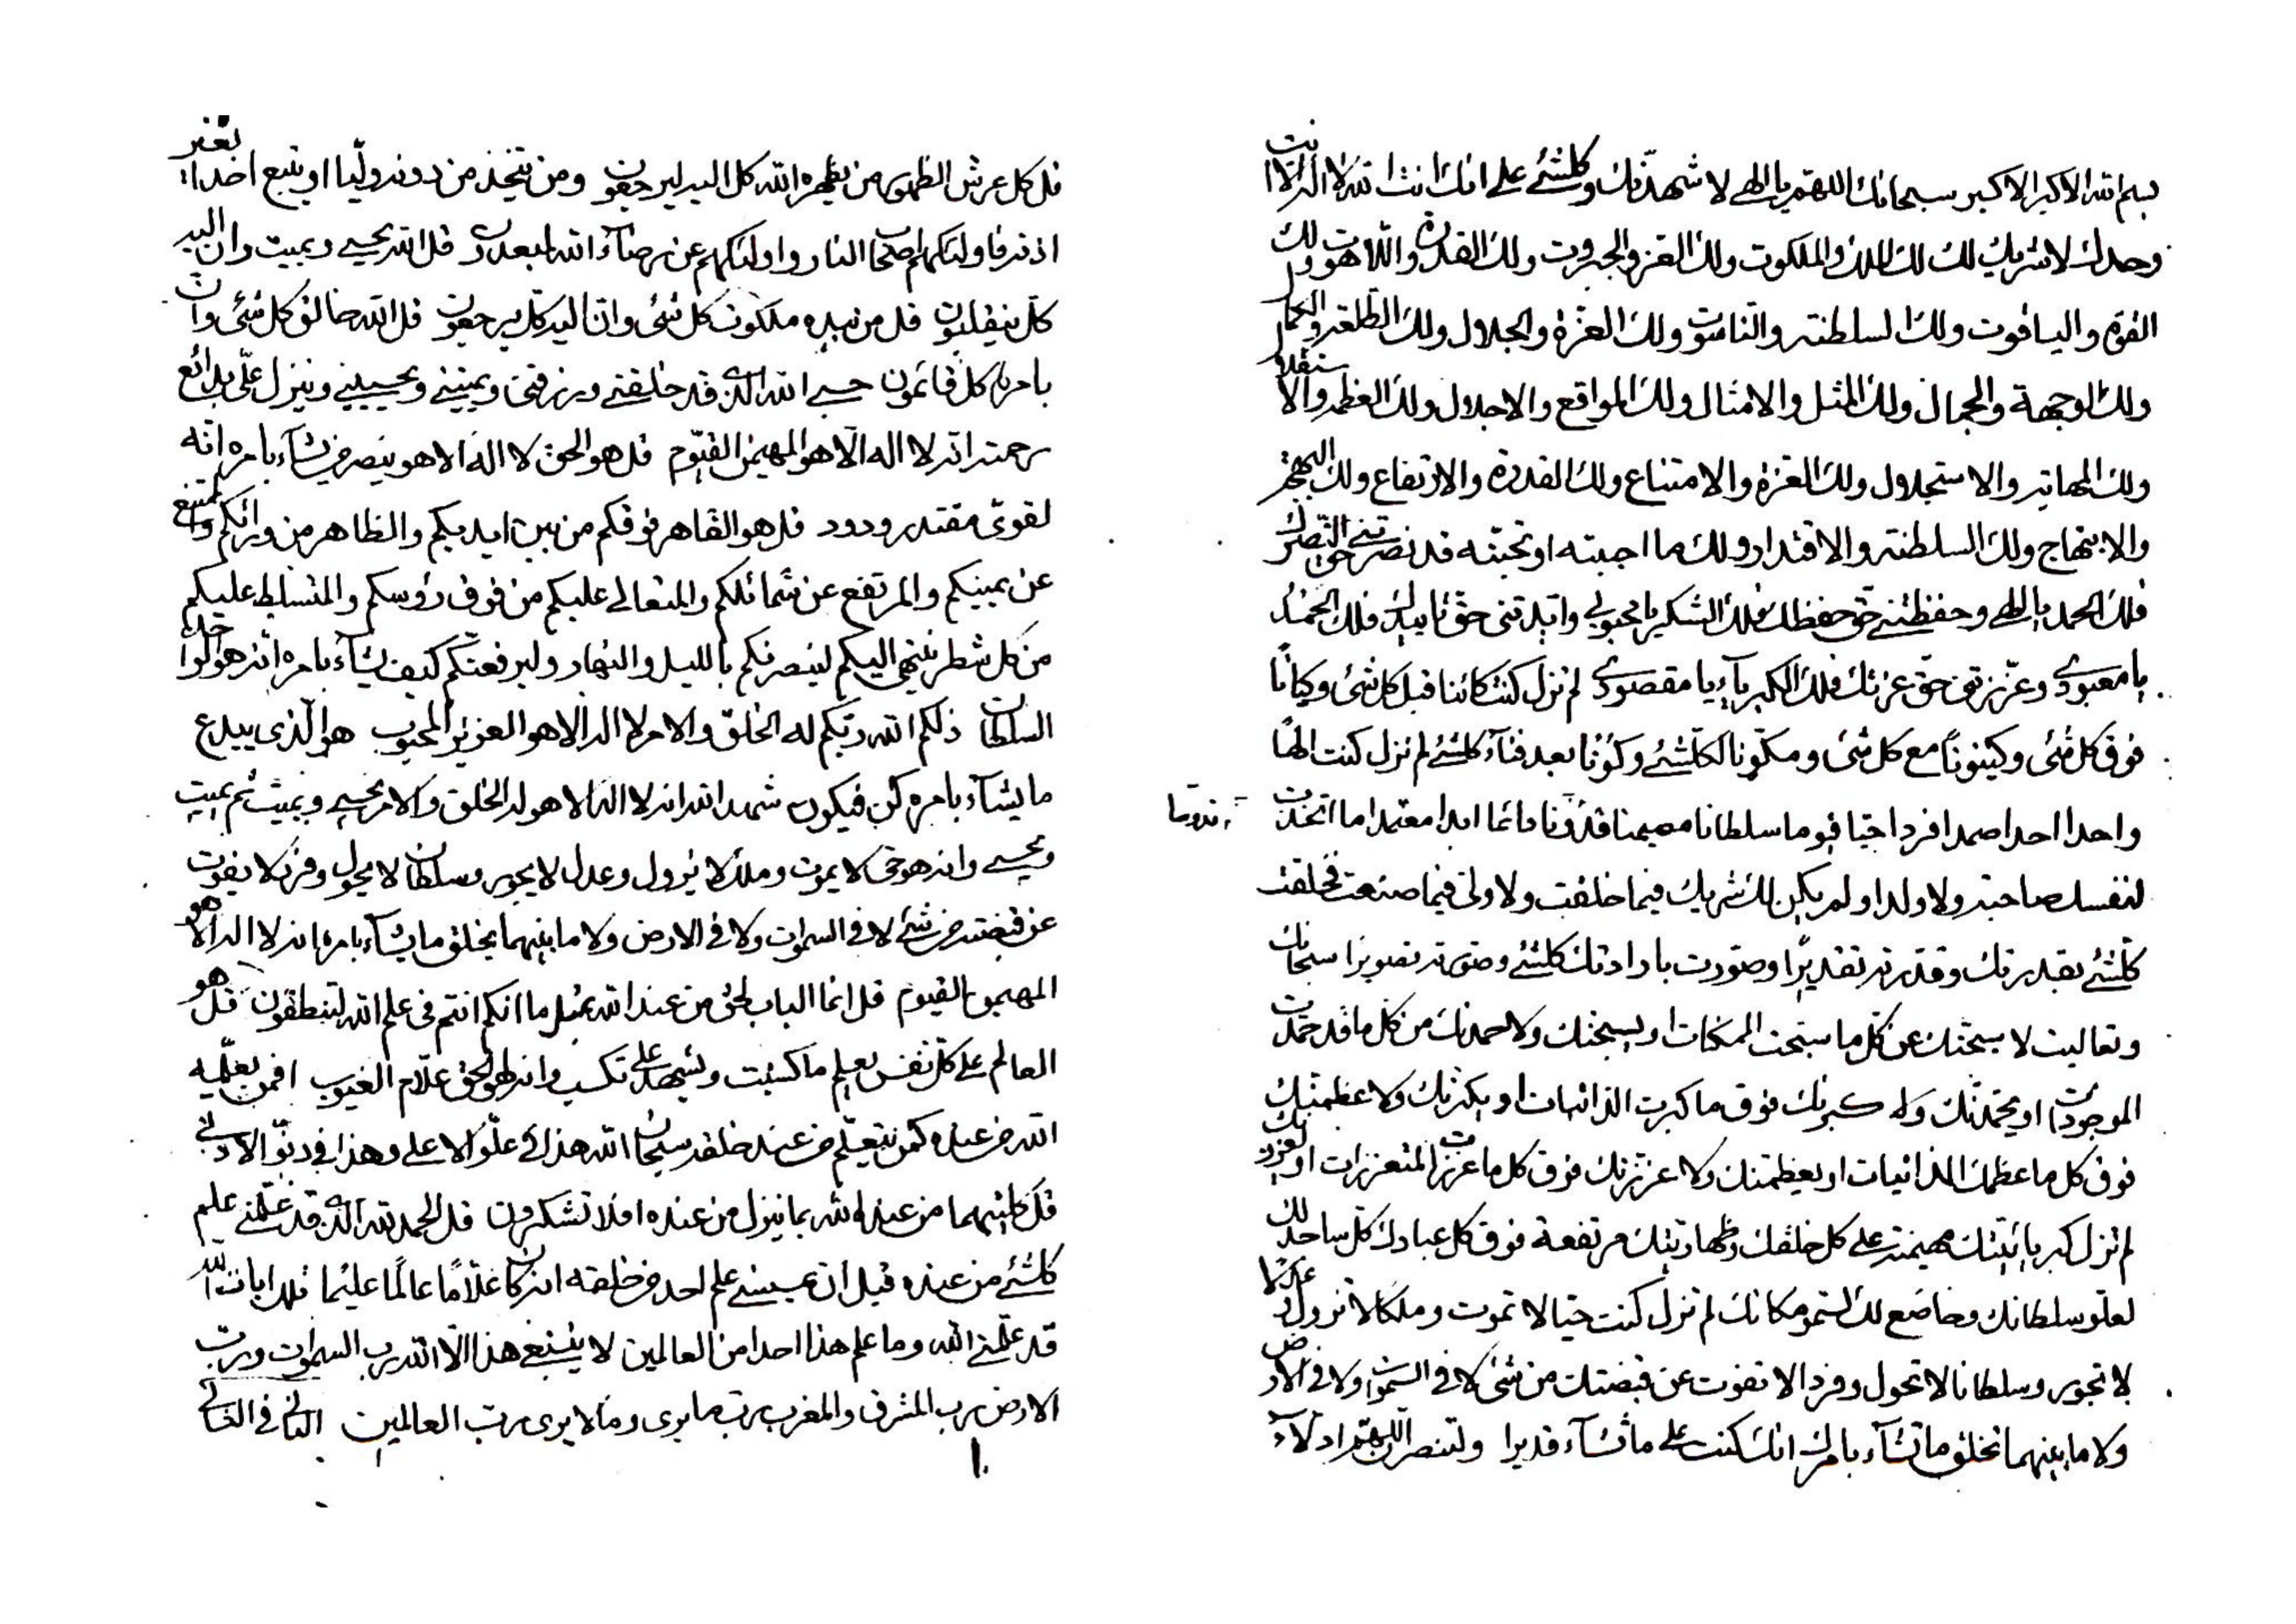 بسم الله الاكبر الاكبر سبحانك اللهم يا الهي لاشهدنك وكلشئ على انك انت الله لا اله الا انت
وحدك لا شريك لك لك الملك والملكوت ولك العز والجبروت ولك القدرة واللاهوت ولك
القوة والياقوت ولك السلطنة والناسوت ولك العزة والجلال ولك الطلعة والجمال
ولك الوجهة والجمال ولك المثل والامثال ولك المواقع والاجلال ولك العظمة والاستقلال
ولك المهابة والاستجلال ولك العزة والامتناع ولك القدرة والارتفاع ولك البهجة
والابتهاج ولك السلطنة والاقتدار ولك ما احببته او تحبنه قد نصرتني حق النصر
فلك الحمد يا الهي وحفظتني حق حفظك فلك الشكر يا محبوبي وايدتني حق تاييدك فلك الحمد
يا معبودي وعززتني حق عزتك فلك الكبرياء يا مقصودي لم تزل كنت كائنا قبل كل شئ وكيانا
فوق كل شئ وكينونا مع كل شئ ومكونا لكلشئ وكونا بعد فناء كلشئ لم تزل كنت الها
واحدا احدا صمدا فردا حيا قيوما سلطانا مهيمنا قدوسا دائما ابدا معتمدا ما اتخذت
لنفسك صاحبة ولا ولدا ولم يكن لك شريك فيما خلقت ولا ولى فيما صنعت فخلقت
كلشئ بقدرتك وقدرته تقديرا وصورت بارادتك كلشئ وصورته تصويرا سبحانك
وتعاليت لاسبحنك عن كل ما سبحت الممكنات او يسبحنك ولاحمدنك من كل ما قد حمدت
الموجودات او يحمدنك ولاكبرنك فوق ما كبرت الذاتيات او يكبرنك ولاعظمنك
فوق كل ما عظمك الذاتيات او يعظمنك ولاعززنك فوق كل ما عززت المتعززات او يعززنك
لم تزل كبريائيتك مهيمنة على كل خلقك وظهاريتك مرتفعة فوق كل عبادك كل ساجد لك
لعلو سلطانك وخاضع لك لسمو مكانك لم تزل كنت حيا لا تموت وملكا لا تزول وعدلا
لا تجور وسلطانا لا تحول وفردا لا تفوت عن قبضتك من شئ لا في السموات ولا في الارض
ولا ما بينهما تخلق ما تشاء بامرك انك كنت على ما تشاء قديرا ولتنصرن اللهم ادلاء
قل كل عرش الظهور من يظهره الله كل اليه ليرجعون ومن يتخذ من دونه وليا او يتبع احدا بغير
اذنه فاولئك هم اصحاب النار واولئك هم عن رضاء الله لمبعدون قل الله يحيي ويميت وان اليه
كل ينقلبون قل من بيده ملكوت كل شئ وانا اليه كل يرجعون قل الله خالق كل شئ وان
بامره كل قائمون حسبي الله الذي قد خلقني ورزقني ويميتني ويحييني وينزل علي بدائع
رحمته انه لا اله الا هو المهيمن القيوم قل هو الحق لا اله الا هو ينصر من يشاء بامره انه
لقوي مقتدر ودود قل هو القاهر فوقكم من بين ايديكم والظاهر من ورائكم والممتنع
عن يمينكم والمرتفع عن شمائلكم والمتعالي عليكم من فوق رؤسكم والمتسلط عليكم
من كل شطر ينتهي اليكم لينصرنكم بالليل والنهار وليرفعنكم كيف يشاء بامره انه هو الواحد
السلطان ذلكم الله ربكم له الخلق والامر لا اله الا هو العزيز المحبوب هو الذي يبدع
ما يشاء بامره كن فيكون شهد الله انه لا اله الا هو له الخلق والامر يحيي ويميت ثم يميت
ويحيي وانه هو حي لا يموت وملك لا يزول وعدل لا يجور وسلطان لا يحول وفرد لا يفوت
عن قبضته من شئ لا في السموات ولا في الارض ولا ما بينهما يخلق ما يشاء بامره انه لا اله الا هو
المهيمن القيوم قل انما الباب لحق من عند الله بمثل ما انكم انتم في علم الله لتنطقون قل هو
العالم على كل نفس يعلم ما كسبت ويشهد على تكسب وانه لهو الحق علام الغيوب افمن يعلمه
الله من عنده كمن يتعلم من عند خلقه سبحان الله هذا في علو الاعلى وهذا في دنو الادنى
قل كلتيهما من عند الله بما ينزل من عنده افلا تشكرون قل الحمد لله الذي قد علمني علم
كلشئ من عنده قبل ان يمسسني علم احد من خلقه انه كان علاما عالما عليما تلك ايات الله
قد علمني الله وما علم هذا احدا من العالمين لا ينبغي هذا الا الله رب السموات ورب
الارض رب المشرق والمغرب رب ما يرى وما لا يرى رب العالمين الثاني في الثاني